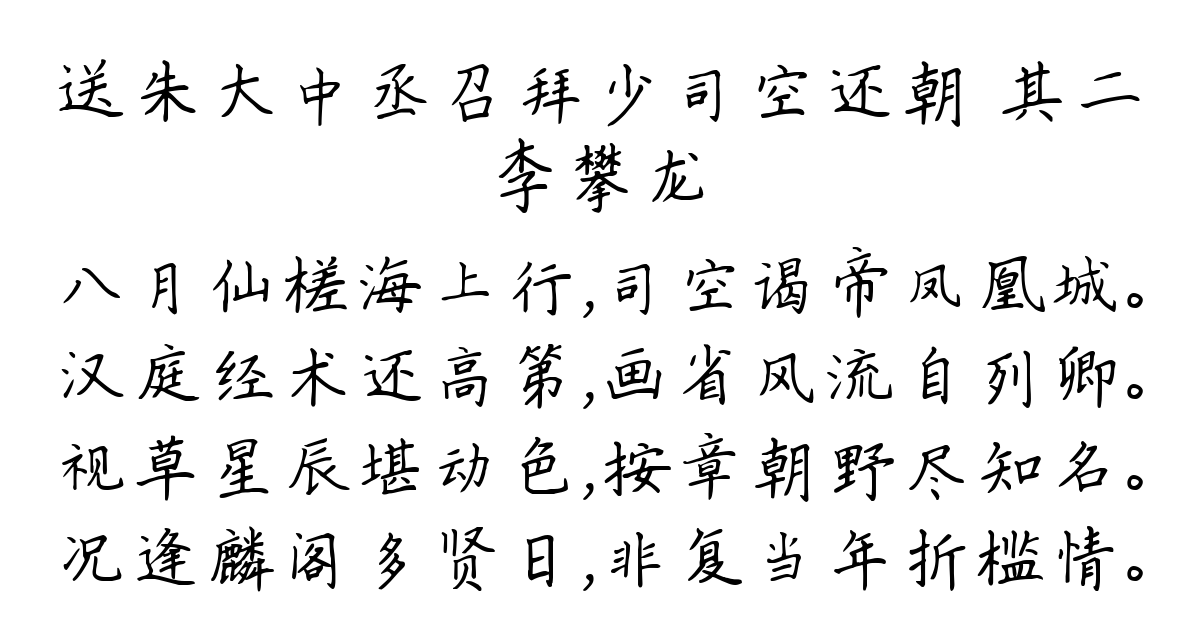 送朱大中丞召拜少司空还朝 其二
李攀龙
八月仙槎海上行,司空谒帝凤凰城。
汉庭经术还高第,画省风流自列卿。
视草星辰堪动色,按章朝野尽知名。
况逢麟阁多贤日,非复当年折槛情。